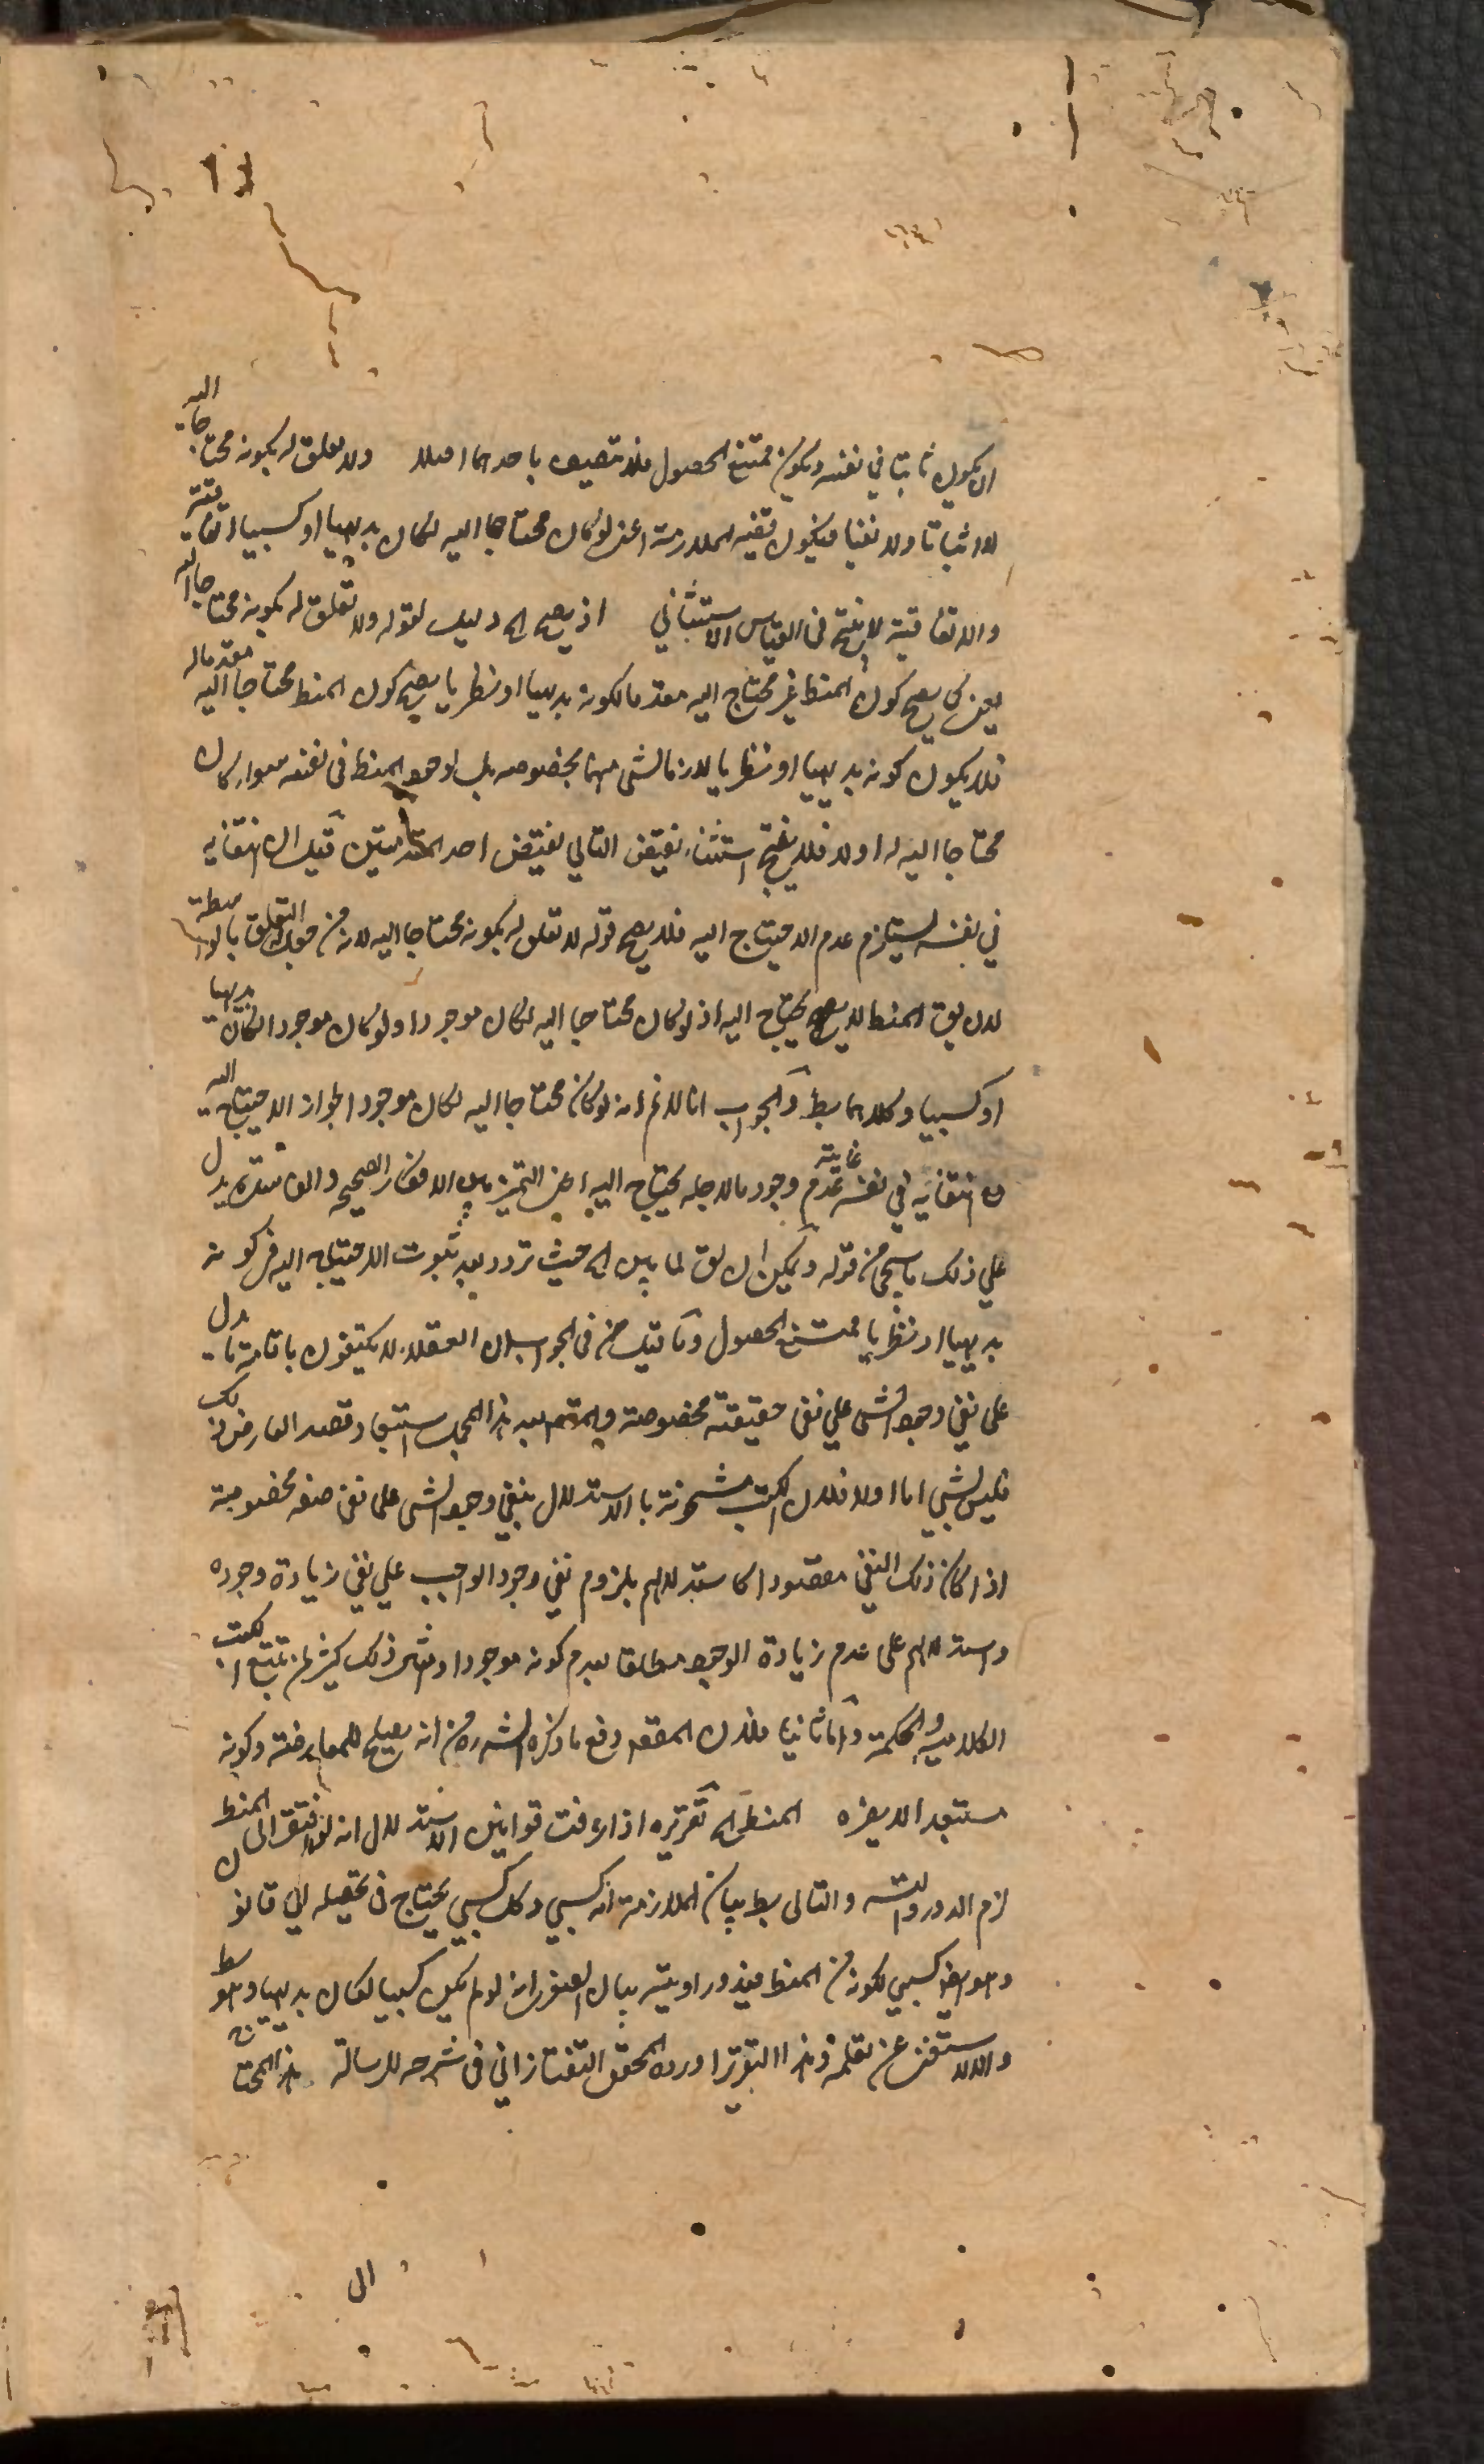 ان يكون ثابتا في نفسه ويكون ممتنع الحصول فلا تتصف باحدهما اصلا ولا تعلق له بكونه محتاجا اليه
لا اثباتا ولا نفيا فيكون قضية الملازمة اعنى لو كان محتاجا اليه لكان بديهيا او كسبيا اتفاقية
والاتفاقية لا ينتج فى القياس الاستثنائي اذ يصح اه دليل لقوله ولا تعلق له بكونه محتاجا اليه
يعنى كما يصح كون المنط غير محتاج اليه معد ما لكونه بديهيا او نظريا يصح كون المنط محتاجا اليه معد ماله
فلا يكون كونه بديهيا او نظريا لازما لشى منهما بخصوصه بل لوجود المنط فى نفسه سواء كان
محتاجا اليه له اولا فلا ينتج استثناء نقيض التالي نقيض احد المتقدمتين قيل ان انتفائه
في نفسه يستلزم عدم الاحتياج اليه فلا يصح قوله لا تعلق له بكونه محتاجا اليه لانه من التعلق بالواسطة
لان يق المنط لا يصح يحتاج اليه اذ لو كان محتاجا اليه لكان موجودا ولو كان موجودا لكان بديهيا
او كسبيا وكلاهما بط والجواب انا لا نم انه لو كان محتاجا اليه لكان موجودا لجواز الاحتياج اليه
مع انتفائه في نفسه غايته عدم وجود ما لاجله يحتاج اليه اعنى التميز بين الافكار الصحيحه والفاسدة يدل
علي ذلك ما سيجئ من قوله ويمكن ان يق لما بين اه حيث تردد بعد ثبوت الاحتياج اليه فى كونه
بديهيا او نظريا ممتنع الحصول وما قيل من فى الجواب ان العقلاء لا يكتفون باقامة ما يدل
على نفي وجود الشى علي نفى حقيقته مخصوصة وقصد المعارض ذلك
فليس بشئ اما اولا فلان الكتب مشحونة بالاستدلال بنفي وجود الشى على نفى صفه مخصوصة
اذا كان ذلك النفي مقصودا كاستدلالهم بلزوم نفي وجود الواجب علي نفي زيادة وجوده
واستدلالهم على عدم زيادة الوجود مطلقا بعدم كونه موجودا ومثل ذلك كثير لمن تتبع الكتب
الكلامية والحكمة واما ثانيا فلان المقصود دفع ما ذكره الشه ره من انه يصلح للمعارضة وكونه
مستبعد الا يضره المنط اه تقريره اذا عرفت قوانين الاستدلال انه لو افتقر الى المنط
لزم الدور والتسه والتالى بط بيان الملازمة انه كسبي وكل كسبي يحتاج فى تحصيله الي قانون
وهو ايض كسبي لكونه من المنط فيدور او يتسه بيان الصغرى انه لو لم يكن كسبيا لكان بديهيا وهو بط
والا لاستغنى عن تعلمه وهذا التقرير اورده المحقق التفتازاني فى شرحه للرسالة